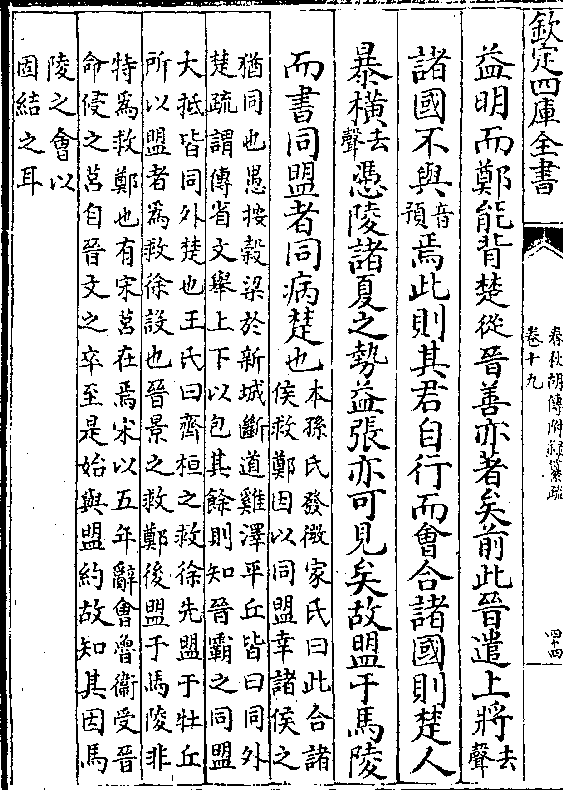 欽定四庫全書
春秋胡傳附録纂疏
卷十九
四十四
益明而鄭能背楚從晉善亦著矣前此晉遣上將去聲
諸國不與音預焉此則其君自行而會合諸國則楚人
暴橫去聲憑陵諸夏之勢益張亦可見矣故盟于馬陵
而書同盟者同病楚也本孫氏發微家氏曰此合諸
侯救鄭因以同盟幸諸侯之
猶同也愚按榖梁於新城斷道雞澤平丘皆曰同外
楚疏謂傳省文舉上下以包其餘則知晉霸之同盟
大抵皆同外楚也王氏曰齊桓之救徐先盟于牡丘
所以盟者為救徐設也晉景之救鄭後盟于馬陵非
特為救鄭也有宋莒在焉宋以五年辭會魯衞受晉
命侵之莒自晉文之卒至是始與盟約故知其因馬
陵之會以
固結之耳